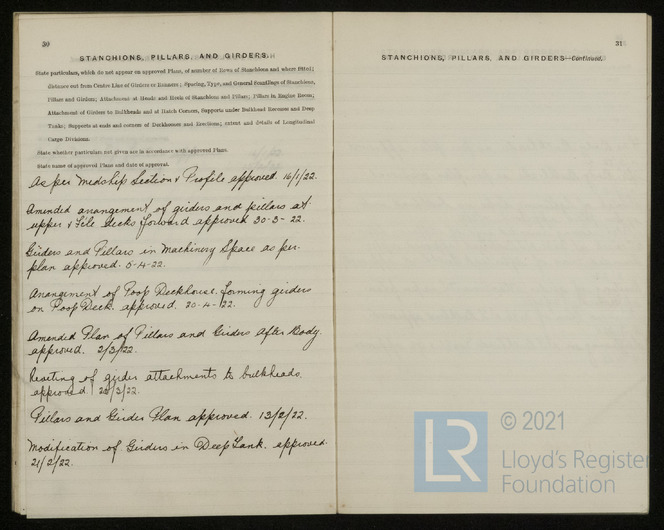 30
STANCHIONS, PILLARS, AND GIRDERS.
State particulars, which do not appear on approved Plans, of number of Rows of Stanchions and where fitted;
distance out from Centre Line of Girders or Runners; Spacing, Type, and General Scantlings of Stanchions,
Pillars and Girders; Attachments at Heads and Heels of Stanchions and Pillars; Pillars in Engine Room;
Attachment of Girder to Bulkheads and at Hatch Corners, Supports under Bulkhead Recesses and Deep
Tanks; Supports at ends and corners of Deckhouses and Erections; extent and details of Longitudinal
Cargo Divisions.
State whether particulars not given are in accordance with approved Plans.
State name of approved Plans and date of approval.
As per Midship Section & Profile approved. 16/1/22.
Amended arrangement of girders and pillars at
upper & F'cle decks forward approved 30-3-22.
Girders and Pillars in Machinery Space as per
plan approved. 5-4-22.
Arrangement of Poop Deckhouse. forming girders
on Poop Deck. approved. 20-4-22.
Amended Plan of Pillars and Girders After Body
approved. 2/3/22.
of girder attachments to bulkheads.
approved.
Pillars and Girder Plan approved. 13/2/22.
Modification of Girders in Deep Tank. approved.
21/2/22.
31
STANCHIONS, PILLARS, AND GIRDERS—Continued.
LR
© 2021
Lloyd's Register
Foundation